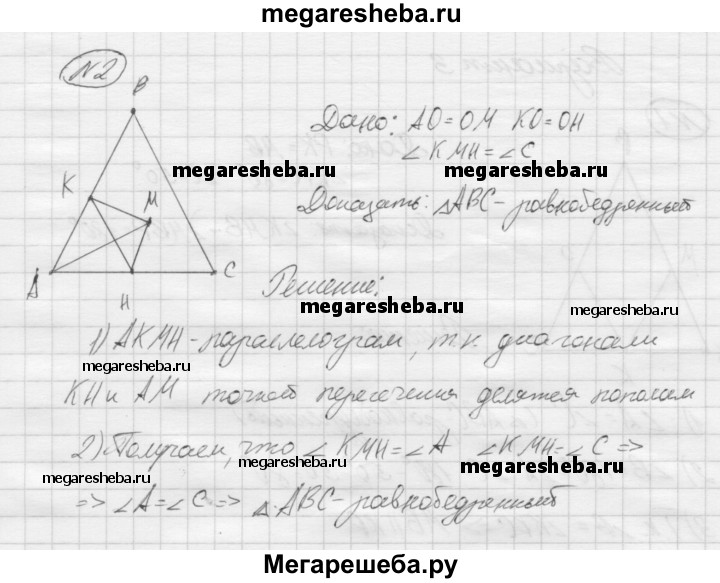 megaresheba.ru
№2
B
Дано: AO=OM KO=OH
∠KMH=∠C
megaresheba.ru
megaresheba.ru
K
M
Доказать: △ABC-равнобедренный
A
H
C
Решение:
megaresheba.ru
megaresheba.ru
1) AKMH-параллелограм, т.к. диагонали
megaresheba.ru
KH и AM точкой пересечения делятся пополам
2) Получаем, что ∠KMH=∠A ∠KMH=∠C =>
megaresheba.ru
megaresheba.ru
megaresheba.ru
=> ∠A=∠C => △ABC-равнобедренный
Мегарешеба.ру